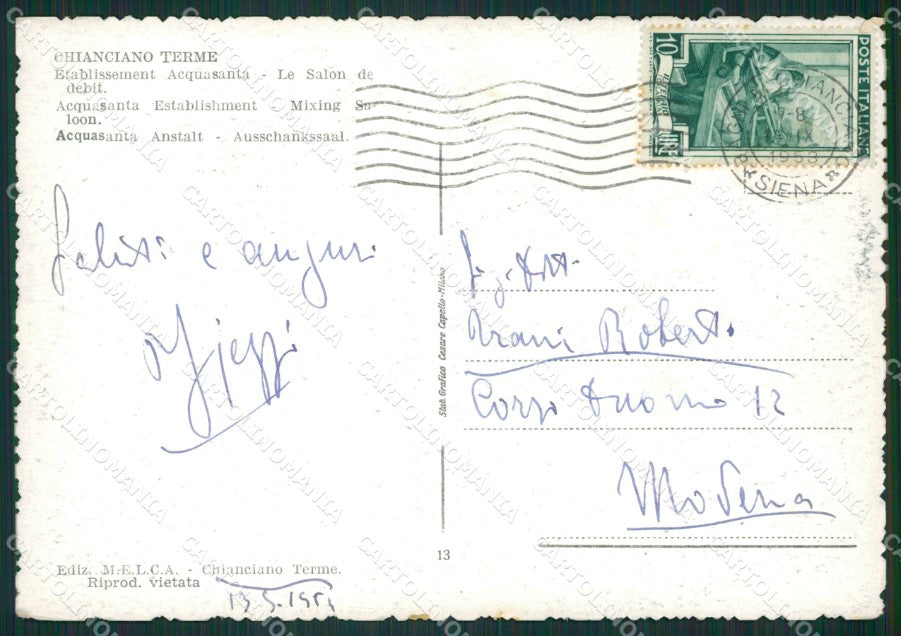 CHIANCIANO TERME
Etablissement Acquasanta - Le Salon de
debit.
Acquasanta Establishment - Mixing Sa-
loon.
Acquasanta Anstalt - Ausschankssaal.
10 LIRE
POSTE ITALIANE
CHIANCIANO
SIENA
Saluti e auguri
Sig. Dott.
Roberto
Corso Duomo 12
Modena
Stab. Grafico Cesare Capello-Milano
13
Ediz. M.E.L.CA. - Chianciano Terme.
Riprod. vietata
CARTOLINOMANIA